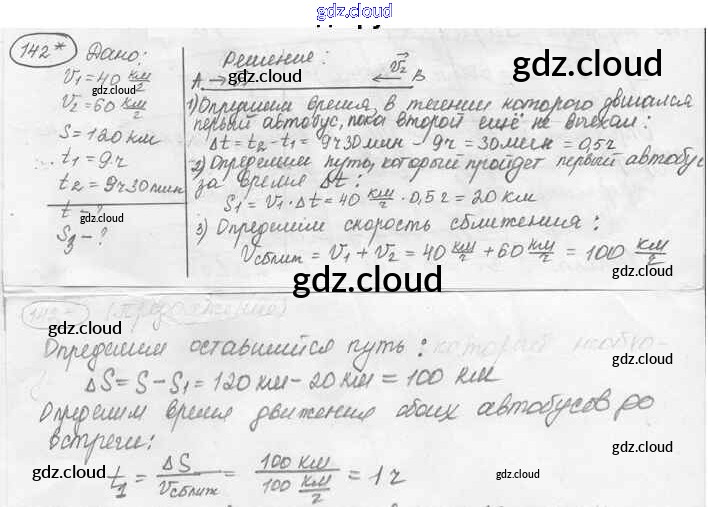 gdz.cloud
142* Дано:
V₁ = 40 км/ч
V₂ = 60 км/ч
S = 120 км
t₁ = 9 ч
t₂ = 9 ч 30 мин
t - ?
S₃ - ?
Решение:
A → V₂ B
1) Определим время, в течении которого двигался
первый автобус, пока второй ещё не выехал:
Δt = t₂ - t₁ = 9 ч 30 мин - 9 ч = 30 мин = 0,5 ч
2) Определим путь, который пройдет первый автобус
за время Δt:
S₁ = V₁ · Δt = 40 км/ч · 0,5 ч = 20 км
3) Определим скорость сближения:
Vсближ = V₁ + V₂ = 40 км/ч + 60 км/ч = 100 км/ч
142* (продолжение)
Определим оставшийся путь: который необхо-
ΔS = S - S₁ = 120 км - 20 км = 100 км
Определим время движения обоих автобусов до
встречи:
t₁ = ΔS / Vсближ = 100 км / 100 км/ч = 1 ч
gdz.cloud
gdz.cloud
gdz.cloud
gdz.cloud
gdz.cloud
gdz.cloud
gdz.cloud
gdz.cloud
gdz.cloud
gdz.cloud
gdz.cloud